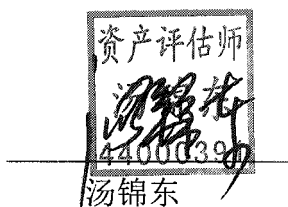 资产评估师
汤锦东
4400039
汤锦东